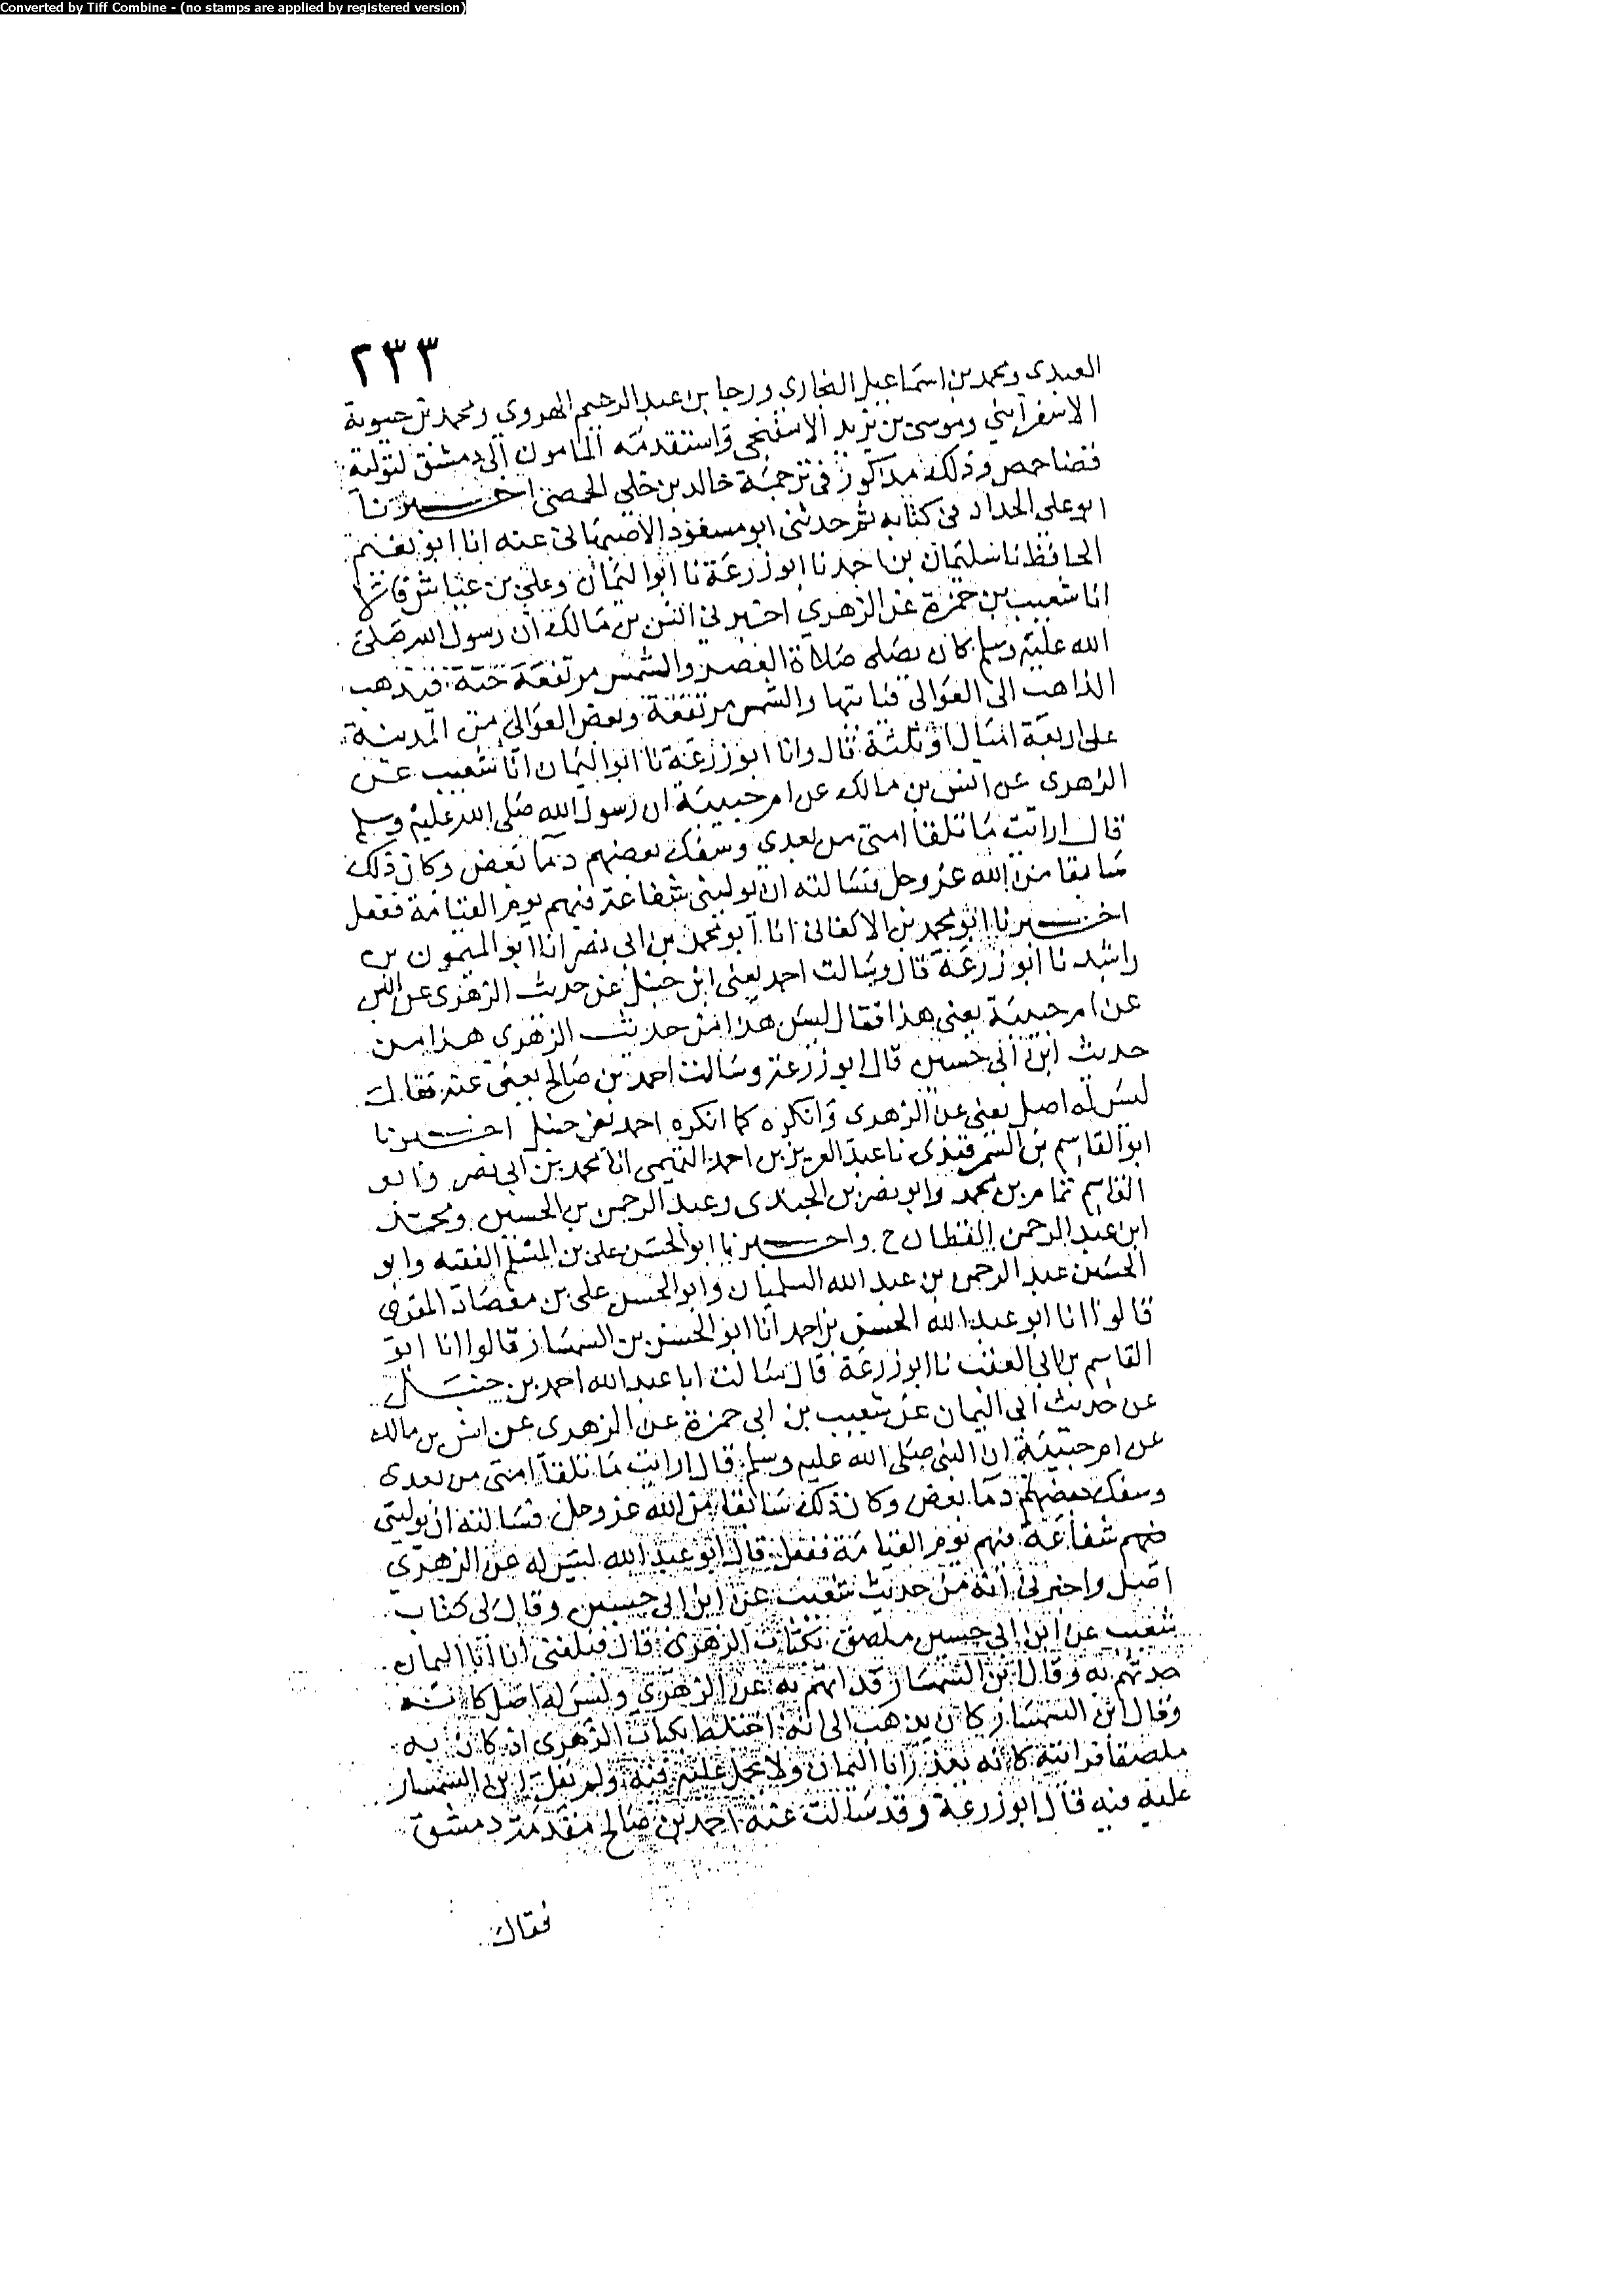 Converted by Tiff Combine - (no stamps are applied by registered version)
٢٣٣
العبدى ومحمد بن اسماعيل البخارى ورجا بن عبد الرحيم الهروي ومحمد بن حيوية
الاسفرايني وموسى بن يزيد الاسفنجى واستقدمه المامون الى دمشق لتولية
قضا حمص وذلك مذكور فى ترجمة خالد بن خلي الحمصى اخبرنا
ابو على الحداد فى كتابه ثم حدثنى ابو مسعود الاصبهانى عنه انا ابو نعيم
الحافظ نا سليمان بن احمد نا ابو زرعة نا ابو اليمان وعلي بن عياش قالا
انا شعيب بن حمزة عن الزهري اخبرني انس بن مالك ان رسول الله صلى
الله عليه وسلم كان يصلى صلاة العصر والشمس مرتفعة حية فيذهب
الذاهب الى العوالى فياتيها والشمس مرتفعة وبعض العوالى من المدينة
على اربعة اميال او ثلثة قال وانا ابو زرعة نا ابو اليمان انا شعيب عن
الزهرى عن انس بن مالك عن ام حبيبة ان رسول الله صلى الله عليه وسلم
قال ارايت ما تلقا امتى من بعدى وسفك بعضهم دما بعض وكان ذلك
سابقا من الله عز وجل فسالته ان يولينى شفاعة فيهم يوم القيامة ففعل
اخبرنا ابو محمد بن الاكفانى انا ابو محمد بن ابى نصر انا ابو الميمون بن
راشد نا ابو زرعة قال وسالت احمد يعنى ابن حنبل عن حديث الزهرى عن انس
عن ام حبيبة يعنى هذا فقال ليس هذا من حديث الزهرى هذا من
حديث ابن ابى حسين قال ابو زرعة وسالت احمد بن صالح يعنى عنه فقال
ليس له اصل يعنى عن الزهرى وانكره كما انكره احمد بن حنبل اخبرنا
ابو القاسم بن السمرقندى نا عبد العزيز بن احمد التميمى انا محمد بن ابى نصر وابو
القاسم تمام بن محمد وابو نصر بن الجندى وعبد الرحمن بن الحسين ومحمد
ابن عبد الرحمن القطان ح واخبرنا ابو الحسن على بن المسلم الفقيه وابو
الحسين عبد الرحمن بن عبد الله السلميان وابو الحسن على بن معضاد المقرى
قالوا انا ابو عبد الله الحسن بن احمد انا ابو الحسن بن السمسار قالوا انا ابو
القاسم بن ابى العقب نا ابو زرعة قال سالت ابا عبد الله احمد بن حنبل
عن حديث ابى اليمان عن شعيب بن ابى حمزة عن الزهرى عن انس بن مالك
عن ام حبيبة ان النبى صلى الله عليه وسلم قال ارايت ما تلقا امتى من بعدى
وسفك بعضهم دما بعض وكان ذلك سابقا من الله عز وجل فسالته ان يولينى
فيهم شفاعة فيهم يوم القيامة ففعل قال ابو عبد الله ليس له عن الزهرى
اصل واخبرنى انه من حديث شعيب عن ابن ابى حسين وقال لى كتاب
شعيب عن ابن ابى حسين ملصق بكتاب الزهرى قال فبلغنى ان ابا اليمان
حدثهم به وقال ابن السمسار قد اتهم به عن الزهرى وليس له اصل كانه
وقال ابن السمسار كان يذهب الى انه اختلط بكتاب الزهرى اذ كان به
ملصقا فرايته كانه يعذر ابا اليمان ولا يحمل عليه فيه ولم يقل ابن السمسار
عليه فيه قال ابو زرعة وقد سالت عنه احمد بن صالح مقدمه دمشق
فقال